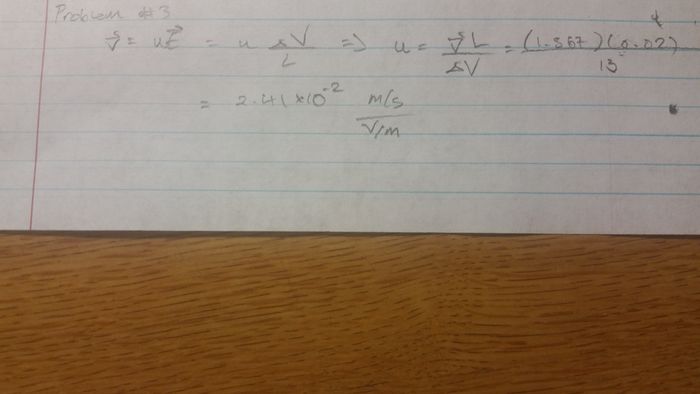 Problem #3
v̄ = uE⃗ = u ΔV/L ⇒ u = v̄L/ΔV = (1.567)(0.02)/13
= 2.41×10⁻² m/s / V/m